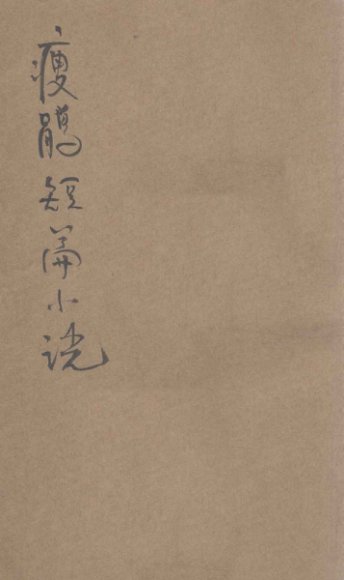 瘦鹃短篇小说